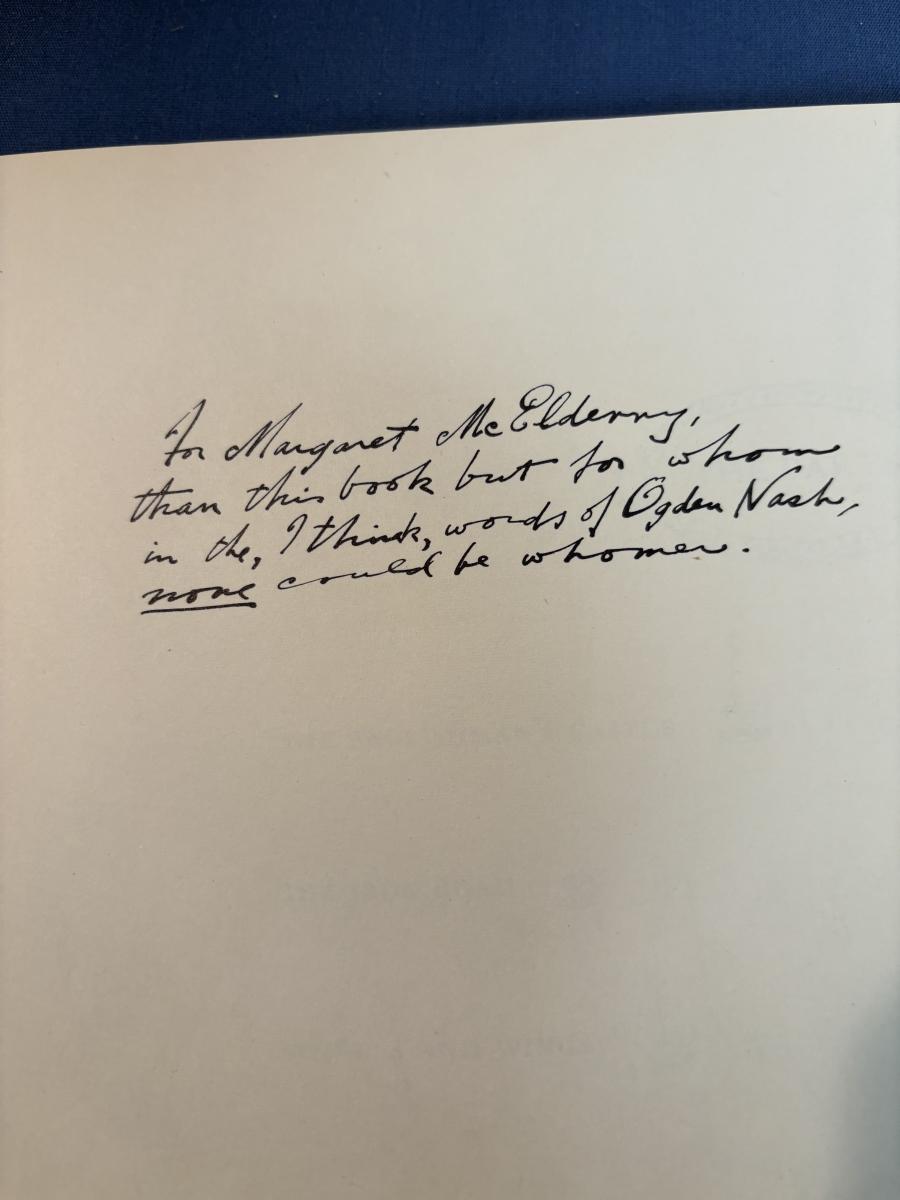 For Margaret McElderry,
than this book but for whom
in the, I think, words of Ogden Nash,
none could be whomer.